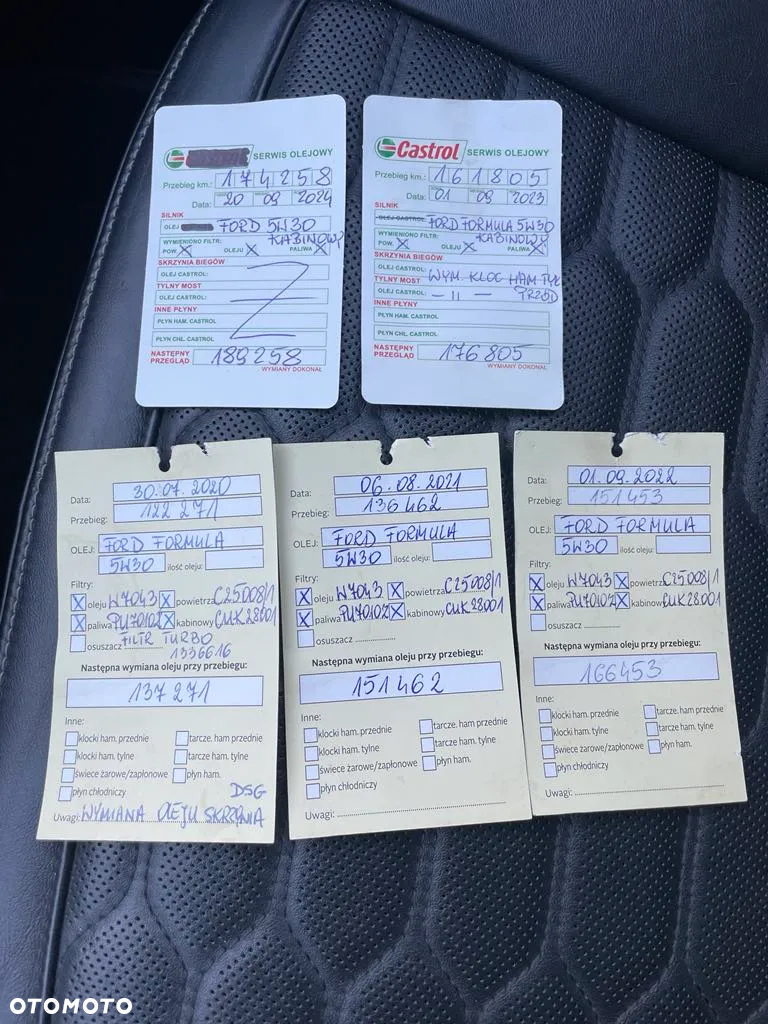 SERWIS OLEJOWY
Przebieg km.: 174258
Data: 20 09 2024
SILNIK
OLEJ FORD 5W30
WYMIENIONO FILTR: KABINOWY
POW. X OLEJU X PALIWA X
SKRZYNIA BIEGÓW
OLEJ CASTROL:
TYLNY MOST
OLEJ CASTROL:
INNE PŁYNY
PŁYN HAM. CASTROL
PŁYN CHŁ. CASTROL
NASTĘPNY PRZEGLĄD 189258
WYMIANY DOKONAŁ
Castrol SERWIS OLEJOWY
Przebieg km.: 161805
Data: 01 09 2023
SILNIK
OLEJ CASTROL: FORD FORMULA 5W30
WYMIENIONO FILTR: KABINOWY
POW. X OLEJU X PALIWA X
SKRZYNIA BIEGÓW
OLEJ CASTROL: WYM KLOC HAM TYŁ
TYLNY MOST
OLEJ CASTROL: — 11 — PRZÓD
INNE PŁYNY
PŁYN HAM. CASTROL
PŁYN CHŁ. CASTROL
NASTĘPNY PRZEGLĄD 176805
WYMIANY DOKONAŁ
Data: 30.07.2020
Przebieg: 122 271
OLEJ: FORD FORMULA
5W30 ilość oleju:
Filtry:
X oleju W7043 X powietrza C25008/1
X paliwa PU7010Z X kabinowy CUK28001
osuszacz FILTR TURBO
1336616
Następna wymiana oleju przy przebiegu:
137 271
Inne:
klocki ham. przednie tarcze. ham przednie
klocki ham. tylne tarcze ham. tylne
świece żarowe/zapłonowe płyn ham.
płyn chłodniczy
DSG
Uwagi: WYMIANA OLEJU SKRZYNIA
Data: 06.08.2021
Przebieg: 136 462
OLEJ: FORD FORMULA
5W30 ilość oleju:
Filtry:
X oleju W7043 X powietrza C25008/1
X paliwa PU7010Z X kabinowy CUK28001
osuszacz
Następna wymiana oleju przy przebiegu:
151 462
Inne:
klocki ham. przednie tarcze. ham przednie
klocki ham. tylne tarcze ham. tylne
świece żarowe/zapłonowe płyn ham.
płyn chłodniczy
Uwagi:
Data: 01.09.2022
Przebieg: 151 453
OLEJ: FORD FORMULA
5W30 ilość oleju:
Filtry:
X oleju W7043 X powietrza C25008/1
X paliwa PU7010Z X kabinowy CUK28001
osuszacz
Następna wymiana oleju przy przebiegu:
166453
Inne:
klocki ham. przednie tarcze. ham przednie
klocki ham. tylne tarcze ham. tylne
świece żarowe/zapłonowe płyn ham.
płyn chłodniczy
Uwagi:
OTOMOTO